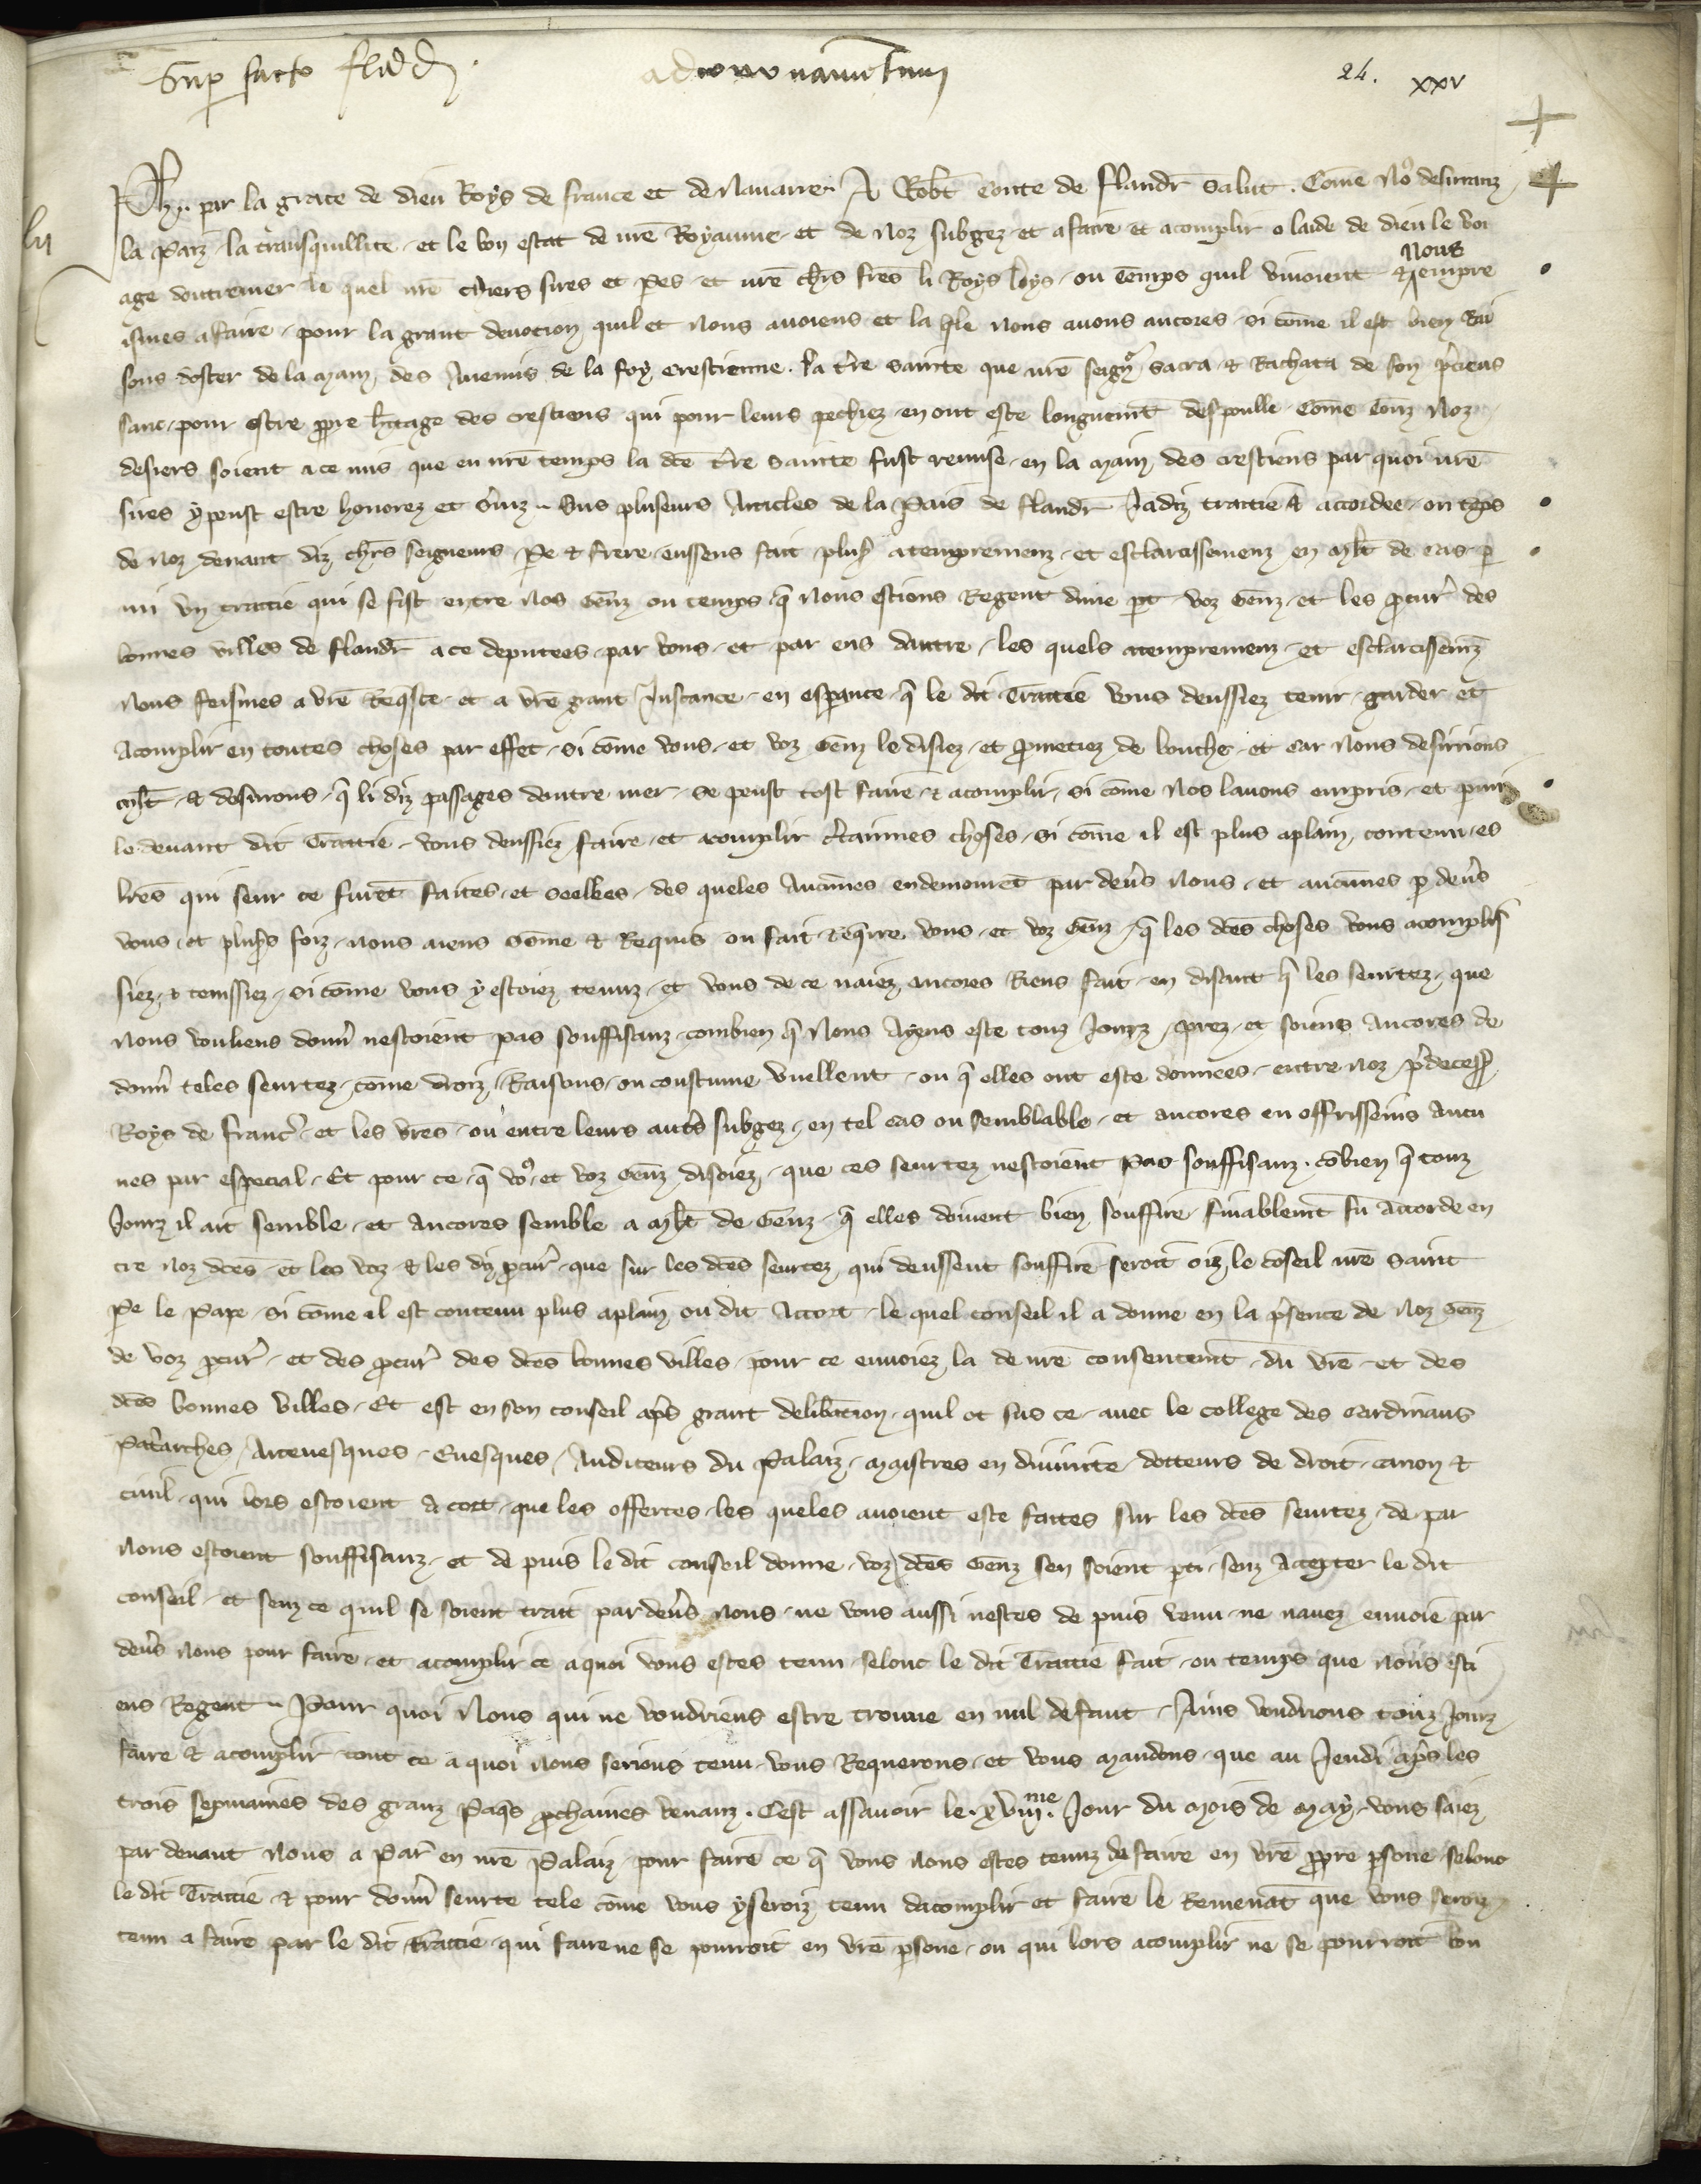 Sup facto fland
24. xxv
lii
Ph. par la grace de dieu Roys de france et de Nauarre. A Robt Conte de flandr Salut. Come No9 desirranz
la Paiz la transquillite et le bon estat de nre Royaume et de noz subgez et a faire et acomplir o laide de dieu le voi
nous
age doutremer le quel nre chiers sires et Pes et nre chrs fres li Roys loys ou temps quil viuoient & empre
ismes a faire pour la grant deuocion quil et nous auoiens et la qle nous auons ancores si come il est bien Rai
sons doster de la main des Anemis de la foy crestienne. la t're sainte que nre seign' sacra & Rachata de son p'cieus
sanc pour estre ppre h'itage des crestiens qui pour leurs pechiez en ont este longuemt despoulle Come touz Noz
desiers soient a ce mis que en nre temps la dce t're sainte fust remise en la main des crestiens par quoi nre
sires y peust estre honorez et s'uiz Sus pluseurs Articles de la Pais de flandr Jadiz traittie & accordee ou teps
de noz deuant diz ch'rs seigneurs Pe & frere eussens fait plus' atempremenz et esclarcissemenz en mlt de cas p
mi vn traitie qui se fist entre nos genz ou temps q nous estions Regent dune pt voz genz et les pcur' des
bonnes villes de flandr a ce deputees par vous et par eus dautre les quels atempremenz et esclarcissemz
nous feismes a vre Req'ste et a vre grant Instance en espance q le dit Traittie vous deussiez tenir garder et
acomplir en toutes choses par effet si come vous et voz genz le disiez et pmetiez de bouche et car nous desirrions
mlt & desirrons q li diz passages doutre mer se peust tost faire & acomplir si come nos lauons empris et pmi
le deuant dit Traittie vous deussiez faire et acomplir c'taines choses si come il est plus aplain contenu es
lres qui seur ce furet faites et seellees des queles Aucunes en demouret par deu's nous et aucunes p deu's
vous et plus's foiz nous aiens some & Requis ou fait req're vous et voz genz q les dces choses vous acomplis
siez & tenissiez si come vous y estoiez tenuz et vous de ce naiez ancores Riens fait en disant q les seurtez que
nous vouliens donn' nestoient pas souffisanz combien q Nous Ayens este touz Jourz prez et soiens ancores de
donn' teles seurtez come droiz Raisons ou coustume vuellent ou q elles ont este donnees entre noz p'decess'
Roys de franc' et les vres ou entre leurs aut's subgez en tel cas ou semblable et ancores en offrissens aucu
nes par especial Et pour ce q vo9 et voz genz disoiez que ces seurtez nestoient pas souffisanz. cobien q touz
Jourz il ait semble et ancores semble a mlt de genz q elles doiuent bien souffire finablemt fu Accorde en
tre noz dces et les voz & les diz pcur' que sur les dces seurtez qui deussent souffire seroit oiz le coseil nre saint
Pe le Pape si come il est contenu plus aplain ou dit Accort le quel conseil il a donne en la p'sence de noz genz
de voz pcur' et des pcur' des dces bonnes villes pour ce enuoiez la de nre consentemt du vre et des
dces bonnes villes Et est en son conseil ap's grant delib'acion quil ot sus ce auec le college des Cardinaus
Pat'arches Arceuesques Euesques Auditeurs du Palaiz maistres en diuinite docteurs de droit canon &
ciuil qui lors estoient a cort que les offertes les queles auoient este faites sur les dces seurtez de par
nous estoient souffisanz et de puis le dit conseil donne voz dces genz sen soient pti senz accepter le dit
conseil et senz ce quil se soient trait par deu's nous ne vous aussi nestes de puis venu ne nauez enuoie par
deu's nous pour faire et acomplir ce a quoi vous estes tenu selonc le dit Traittie fait ou temps que nous esti
ens Regent Pour quoi Nous qui ne voudriens estre trouue en nul defaut Ains voudrions touz Jourz
faire & acomplir tout ce a quoi nous serions tenu vous Requerons et vous mandons que au Jeudi ap's les
trois sepmaines des granz Paqs pchaines venanz. Cest assauoir le xviij.me Jour du mois de May vous soiez
par deuant nous a Par' en nre Palaiz pour faire ce q vous nous estes tenuz de faire en vre ppre psone selonc
le dit Traittie & pour donn' seurte tele come vous y seroiz tenu dacomplir et faire le Remenat que vous seroiz
tenu a faire par le dit traittie qui faire ne se pourroit en vre psone ou qui lors acomplir ne se pourroit bon